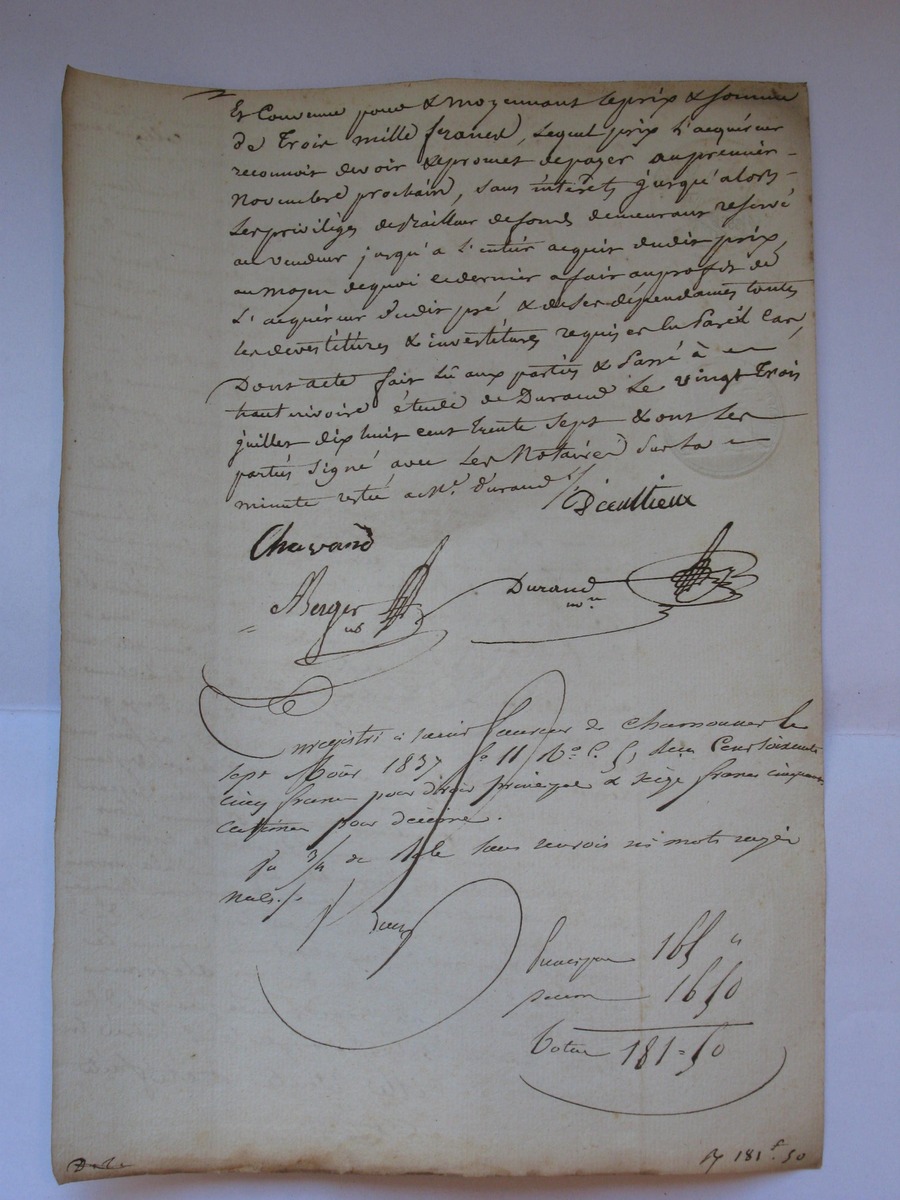 Est Convenue pour & moyennant le prix & somme
de Trois mille francs, lequel prix l'acquéreur
reconnoit devoir & promet de payer au premier
Novembre prochain, sans intérêts jusqu'alors
Les priviléges de Bailleur de fonds demeurant réservé
au vendeur jusqu'à l'entier acquit dudit prix,
au moyen de quoi ce dernier a fait au profit de
L'acquéreur dudit pré & de ses dépendances toutes
les devestitures & investitures requises en Pareil Cas,
Dont acte fait Lû aux parties & Passé à
hauterivoire étude de Durand Le vingt Trois
juillet dix huit cent trente Sept & ont Les
parties Signé avec Les Notaires Sur La
minute restée a Me. Durand ./.
Chavand
Berger
Durand
Enregistré à Saint Laurent de Chamousset le
sept Août 1837 fo 11 Vo C. 5, Reçu Cent soixante
cinq francs pour droit principal & seize francs cinquante
centimes pour décime.
de Role sans renvois ni mots rayés
nuls ./.
Principal 165 "
décime 16 50
Total 181=50
181 f. 50